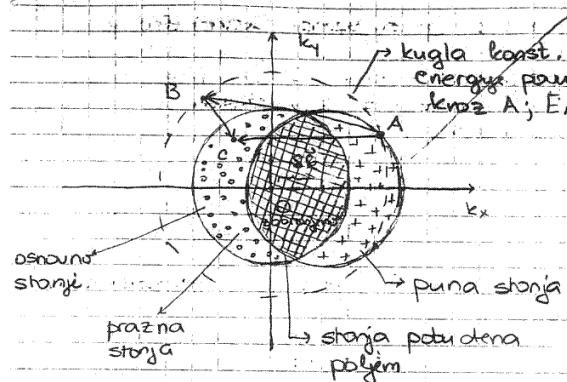 ky
kugla konst.
energije
kroz A; E
B
A
C
δk
kx
osnovno
stanje.
puna stanja
prazna
stanja
stanja
poljem